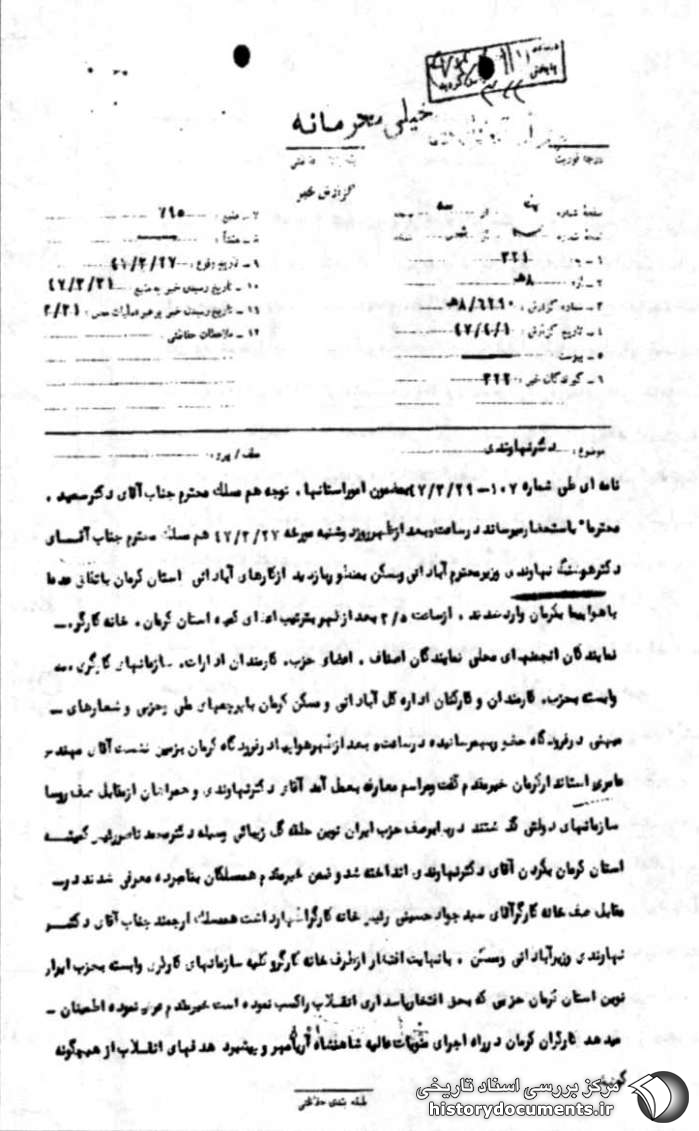 خیلی محرمانه
درجه فوریت
گزارش خبر
صفحه شماره
از
نسخه شماره
۱ - به ۳۴۱
۲ - از ۸ه
۳ - شماره گزارش
۴ - تاریخ گزارش ۴۷/۴/۱
۵ - پیوست
۶ - گیرندگان خبر
۷ - منبع ۷۹۵
۸ - منشأ
۹ - تاریخ وقوع
۱۰ - تاریخ رسیدن خبر به منبع ۴۷/۳/۳۱
۱۱ - تاریخ رسیدن خبر به رهبر عملیات
۱۲ - ملاحظات حفاظتی
موضوع : دکتر نهاوندی
نامه ای طی شماره ۱۰۷ - ۴۷/۳/۲۹ بمضمون امور استانها . توجه هم مسلک محترم جناب آقای دکتر سعید .
محترما باستحضار میرساند در ساعت بعد از ظهر روز دوشنبه مورخه ۴۷/۳/۲۷ هم مسلک محترم جناب آقای
دکتر هوشنگ نهاوندی وزیر محترم آبادانی و مسکن بمنظور بازدید از کارهای آبادانی استان کرمان باتفاق
با هواپیما بکرمان وارد شدند . از ساعت ۲/۵ بعد از ظهر بترتیب اعضای کمیته استان کرمان . خانه کارگر .
نمایندگان انجمنهای محلی نمایندگان اصناف . اعضاء حزب . کارمندان ادارات . سازمانهای کارگری
وابسته بحزب . کارمندان و کارکنان اداره کل آبادانی و مسکن کرمان با پرچمهای ملی و حزبی و شعارهای -
میهنی در فرودگاه حضور بهمرسانیده در ساعت بعد از ظهر هواپیما در فرودگاه کرمان بزمین نشست آقای مهندس
عامری استاندار کرمان خیرمقدم گفت و مراسم معارفه بعمل آمد آقای دکتر نهاوندی و همراهان از مقابل صف روسا
سازمانهای دولتی گذشتند در برابر صف حزب ایران نوین حلقه گل زیبائی وسیله دکتر محمد ناصر رئیس کمیته
استان کرمان بگردن آقای دکتر نهاوندی انداخته شد و ضمن خیرمقدم هم مسلکان بنامبرده معرفی شدند در
مقابل صف خانه کارگر آقای سید جواد حسینی رئیس خانه کارگر اظهار داشت هم مسلک ارجمند جناب آقای دکتر
نهاوندی وزیر آبادانی و مسکن . با نهایت افتخار از طرف خانه کارگر و کلیه سازمانهای کارگری وابسته بحزب ایران
نوین استان کرمان حزبی که بحق افتخار پاسداری انقلاب را کسب نموده است خیرمقدم عرض نموده اطمینان -
میدهد کارگران کرمان در راه اجرای منویات عالیه شاهنشاه آریامهر و پیشبرد هدفهای انقلاب از هیچگونه
طبقه بندی حفاظتی
مرکز بررسی اسناد تاریخی
historydocuments.ir